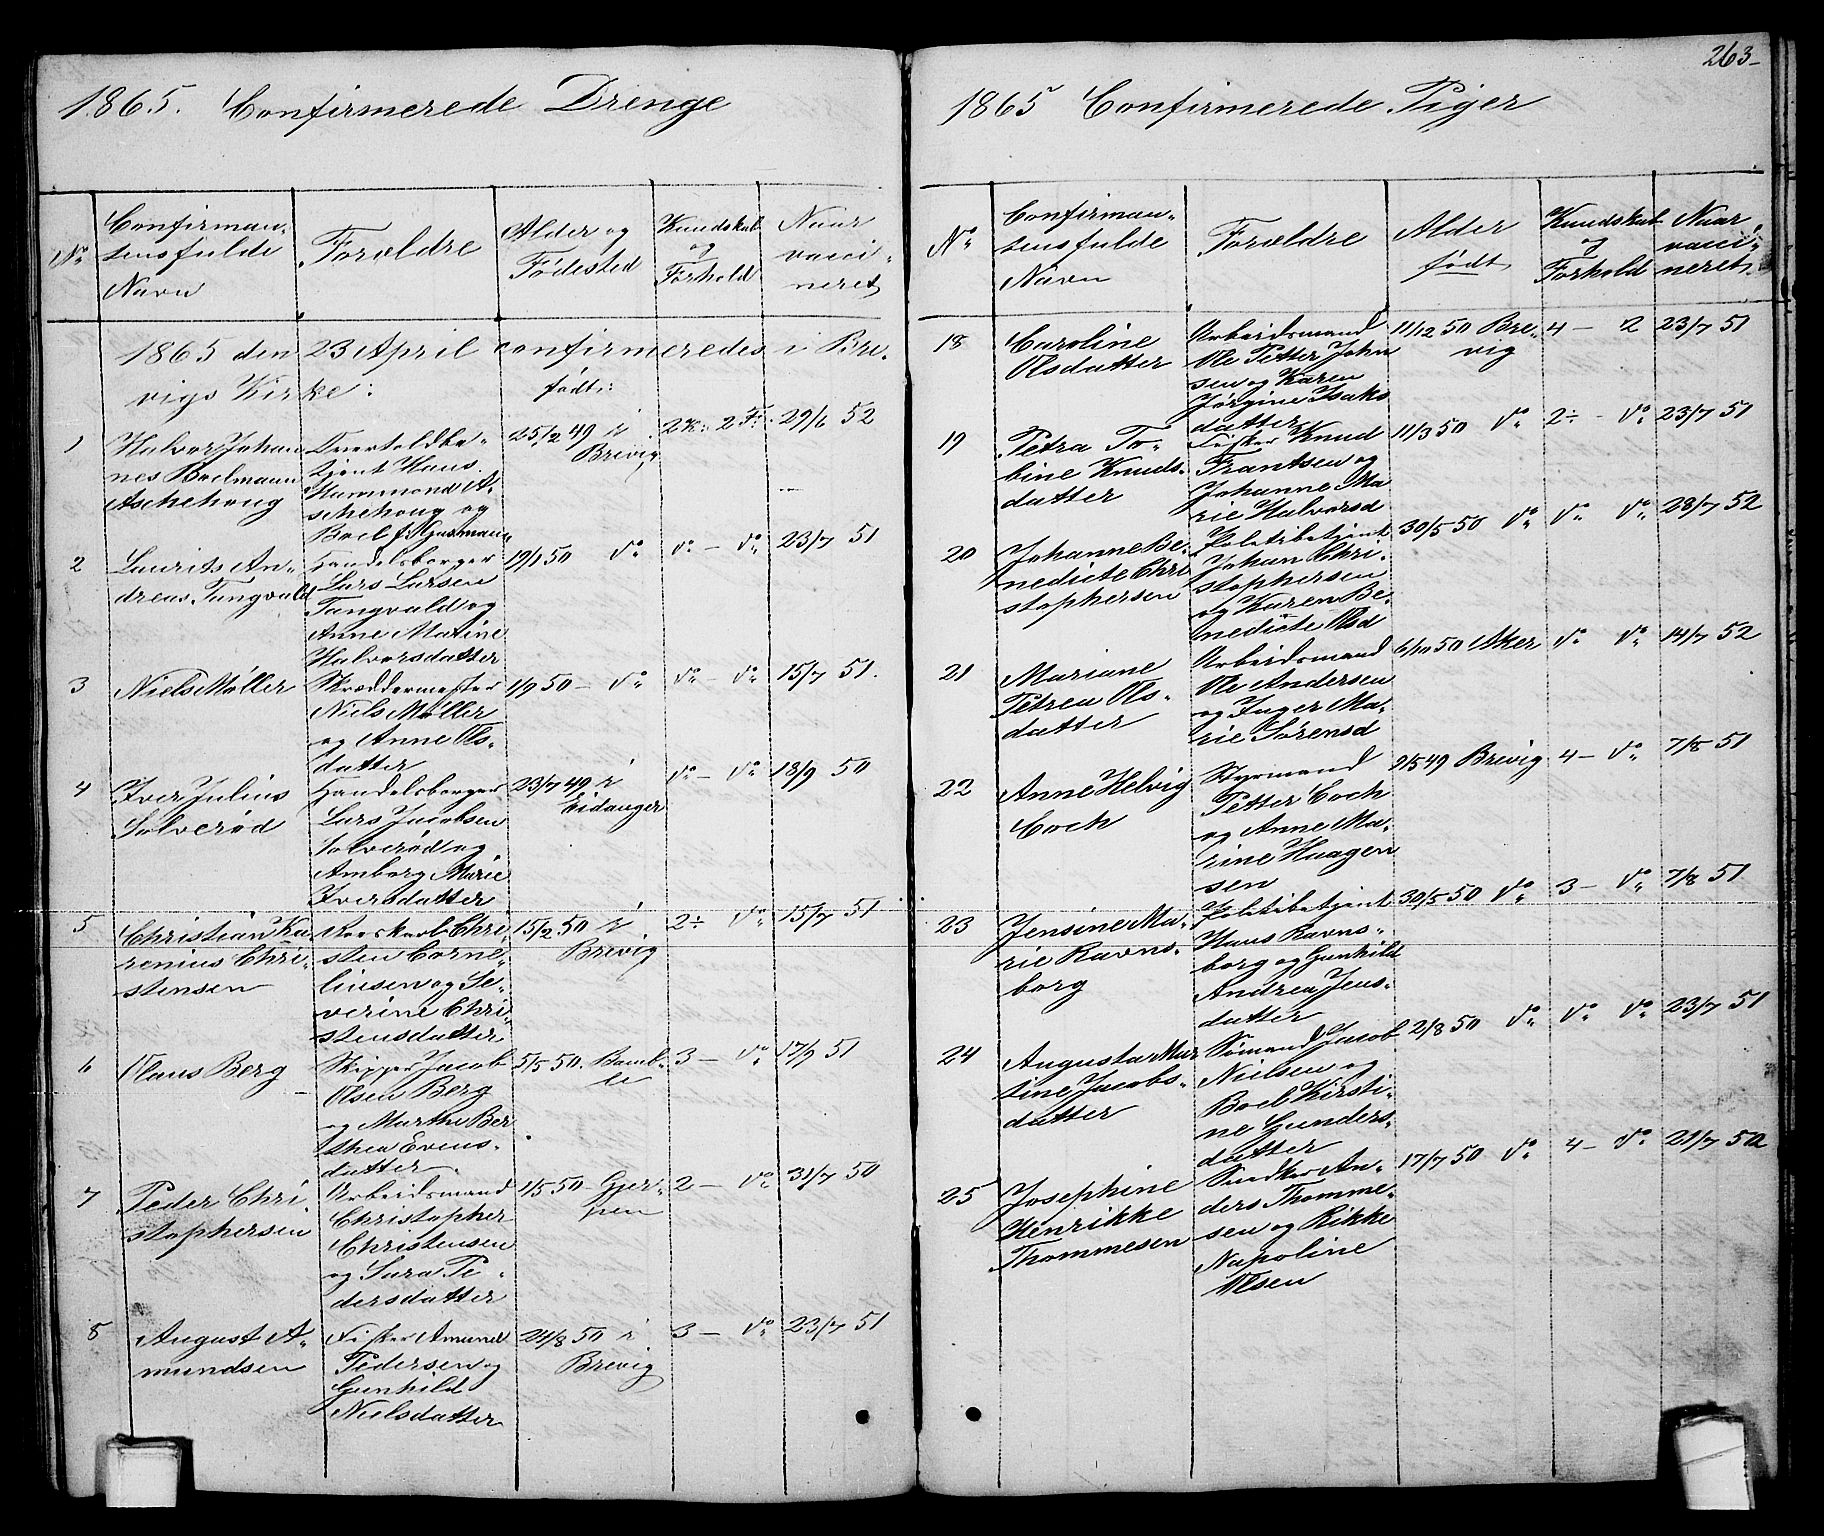 263-
1865. Confirmerede Drenge
No
Confirman-
tens fulde
Navn
Forældre
Alder og
Fødested
Kundskab
og
Forhold
Naar
vacci-
neret
1865 den 23 April confirmeredes i Bre-
vigs Kirke:
født:
1
Halvor Johan
nes Boelmann
Aschehoug
tjent Hans
Hammond A-
schehoug og
Boel f.
25/2 49 i
Brevig
29/6 52
2
Laurits An-
dreas Tangvald
Handelsborger
Lars Larsen
Tangvald og
Anne Matine
Halvorsdatter
19/1 50 do
do - do
23/7 51
3
Niels Møller
Skræddermester
Niels Møller
og Anne Ols-
datter
1/9 50 - do
do - do
15/7 51.
4
Iver Julius
Solverød
Handelsborger
Lars Jacobsen
Solverød og
Amborg Marie
Iversdatter
23/7 49 i
Eidanger
do - do
18/9 50
5
Christian Ka-
renius Chri-
stensen
Chri-
sten Corne-
liusen og Se-
verine Chri-
stensdatter
15/2 50 i
Brevig
2÷ do
15/7 51
6
Claus Berg
Skipper Jacob
Olsen Berg
og Marthe Ber
thea Evens-
datter
5/5 50. Bamb-
le
3 - do
17/9 51
7
Peder Chri-
stophersen
Arbeidsmand
Christopher
Christensen
og Sara Pe-
dersdatter
1/5 50 - Gjer-
pen
2 - do
31/7 50
8
August A-
mundsen
Fisker Amund
Pedersen og
Gunhild
Nielsdatter
24/8 50 i
Brevig
3 - do
23/7 51
1865 Confirmerede Piger
No
Confirman-
tens fulde
Navn
Forældre
Alder
født
Kundskab
og
Forhold
Naar
vacci-
neret
18
Caroline
Olsdatter
Arbeidsmand
Ole Petter John
sen og Karen
Jørgine Isaks
datter
11/12 50 Bre-
vig
4 - 2
23/7 51
19
Petra To-
bine Knuds-
datter
Fisker Knud
Frantsen og
Johanne Ma
rie Halvorsd
11/3 50 do
2÷ - do
23/7 51
20
Johanne Be-
nedicte Chri
stophersen
Politibetjent
Johan Chri-
stophersen
og Karen Be-
nedicte Olsd
30/5 50 do
do do
28/7 52
21
Mariane
Petrea Ols-
datter
Arbeidsmand
Ole Andersen
og Inger Ma-
rie Sørensd
6/10 50 Asker
do do
14/7 52
22
Anne Helvig
Coch
Styrmand
Petter Coch
og Anne Ma-
rine Haagen
sen
9/5 49 Brevig
4 - do
7/8 51
23
Jensine Ma-
rie Ravns-
borg
Politibetjent
Hans Ravns-
borg og Gunhild
Andrea Jens-
datter
30/5 50 do
3 - do
7/8 51
24
Augusta Mar
tine Jacobs-
datter
Sømand Jacob
Nielsen og
Boel Kirsti-
ne Gunders-
datter
2/8 50 do
do do
23/7 51
25
Josephine
Henrikke
Thommesen
Snedker An-
ders Thomme-
sen og Rikke
Napoline
Olsen
17/7 50 do
4 - do
21/7 50